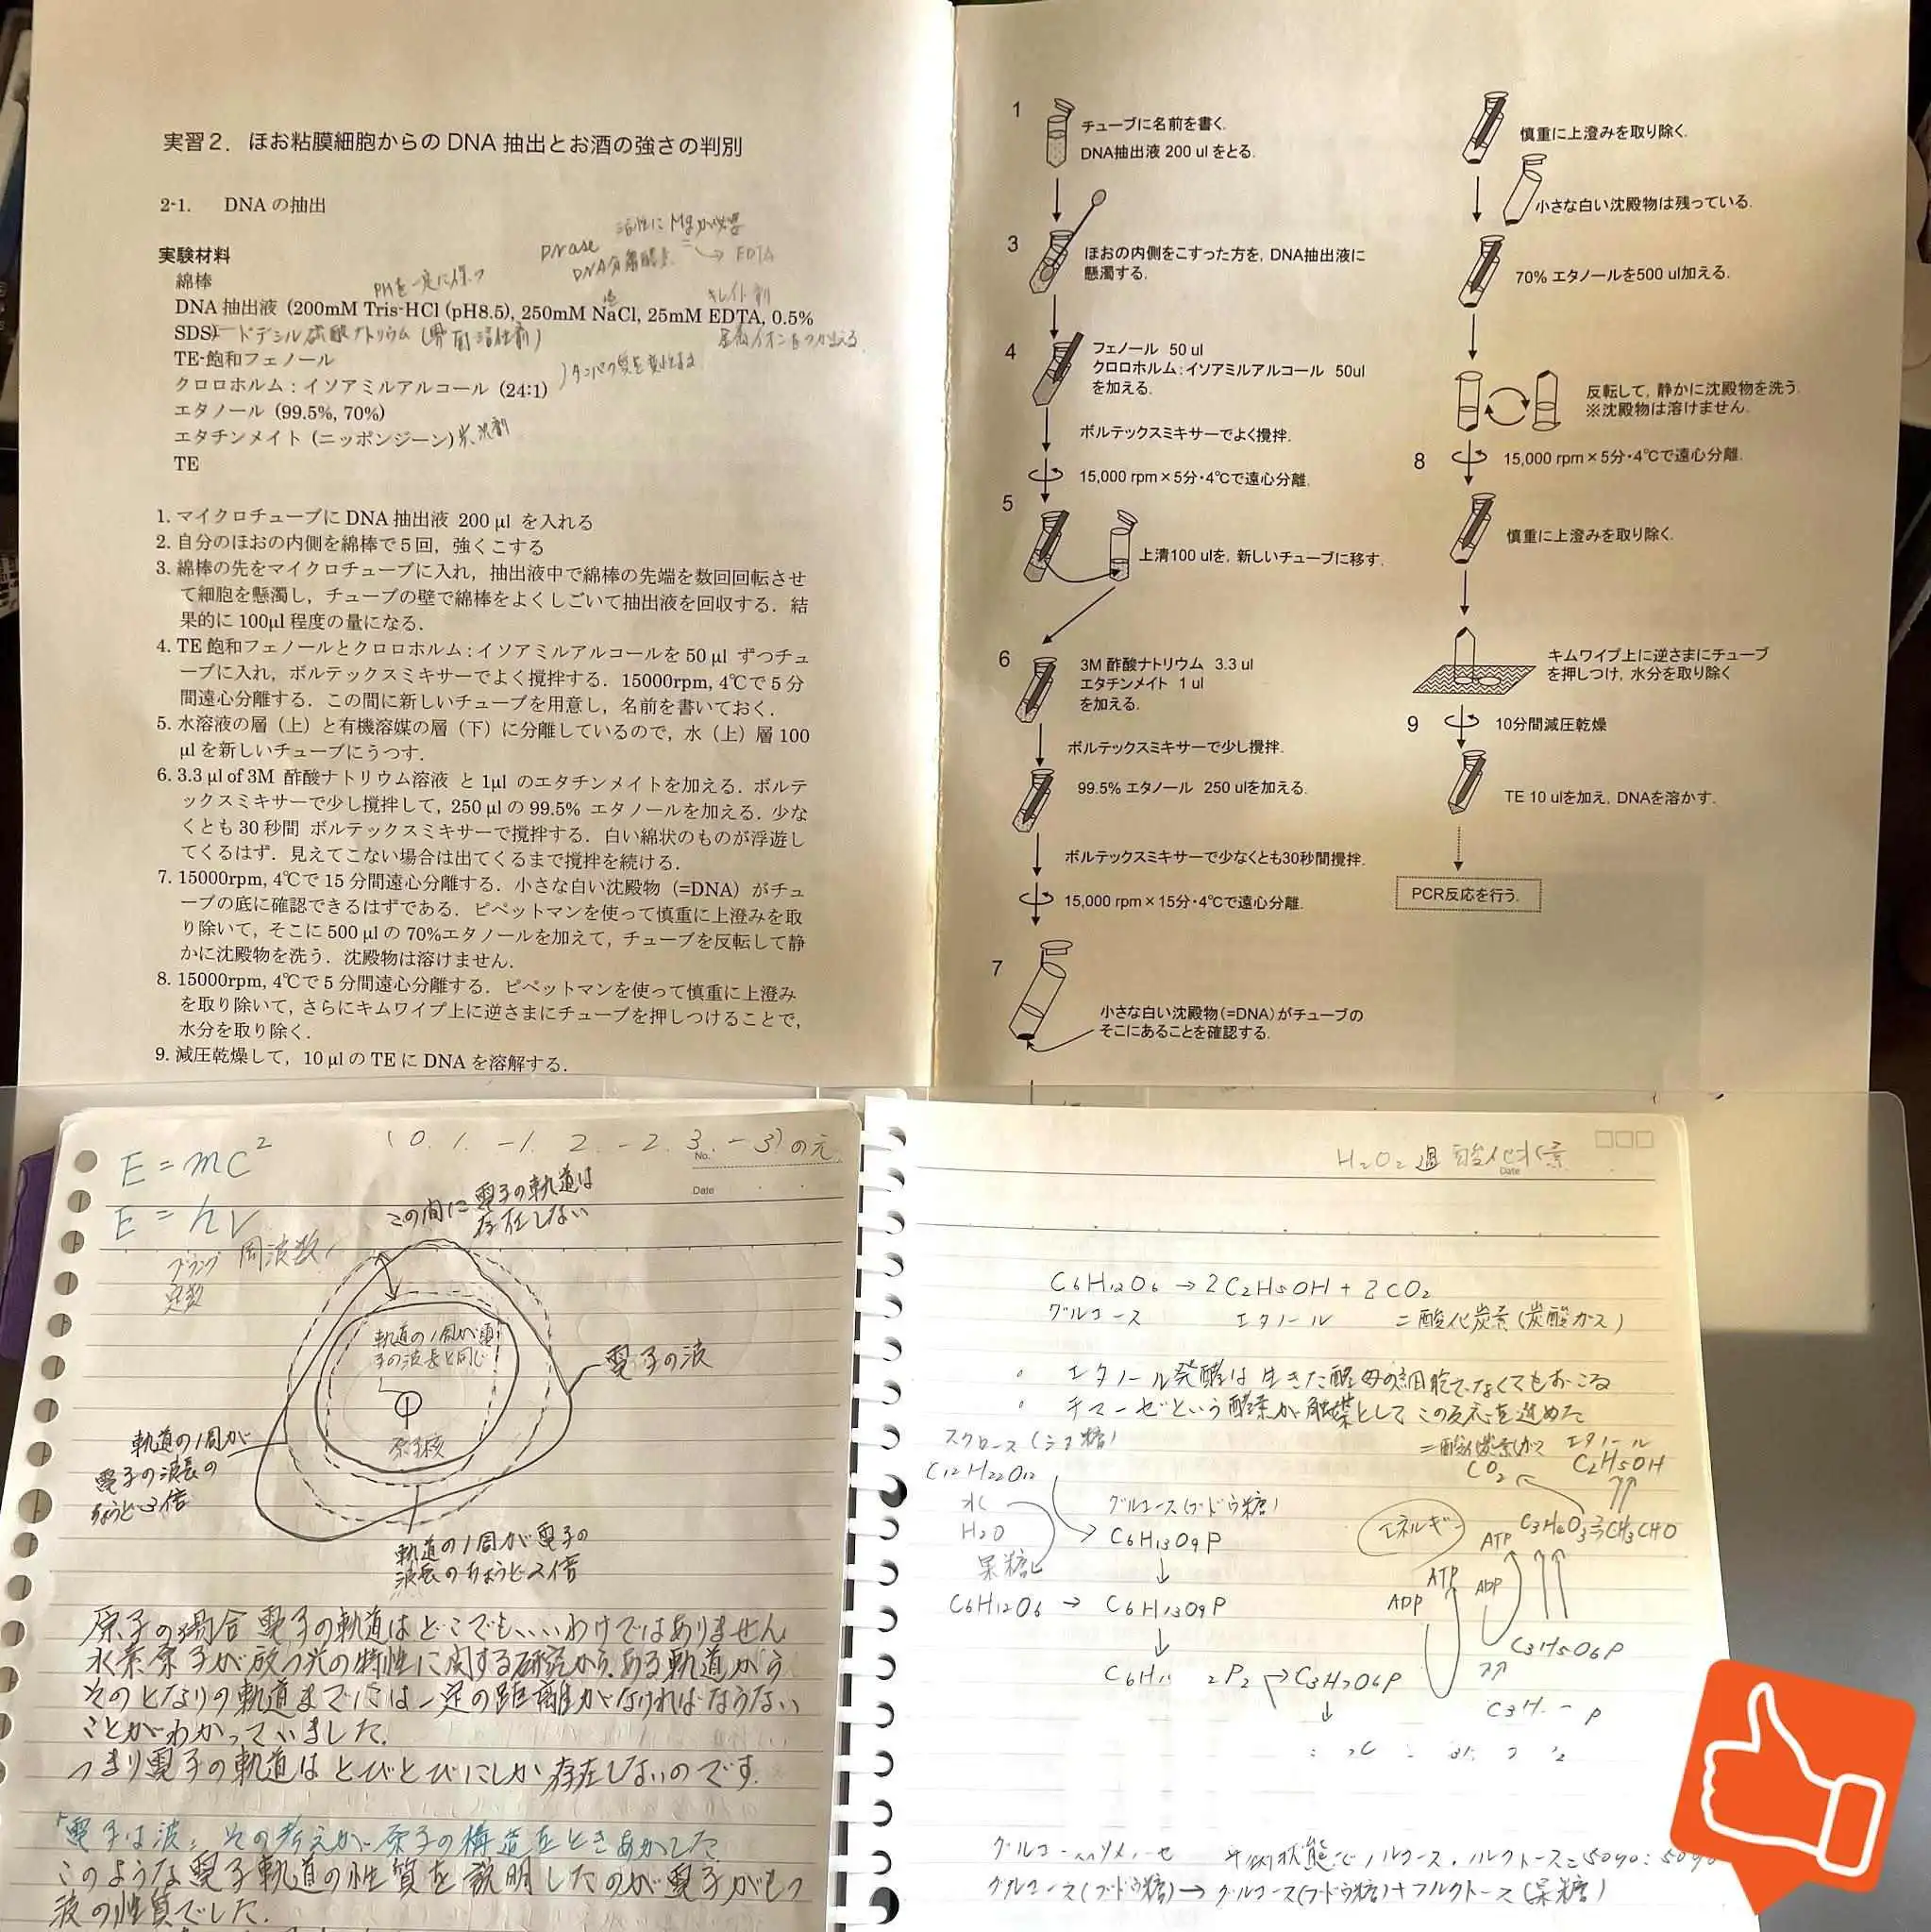 実習2. ほお粘膜細胞からの DNA 抽出とお酒の強さの判別
2-1. DNA の抽出
活性に Mg が必要
DNase
DNA分解酵素 → EDTA
実験材料
綿棒
PHを一定に保つ
塩
キレート剤
DNA 抽出液 (200mM Tris-HCl (pH8.5), 250mM NaCl, 25mM EDTA, 0.5%
SDS) ドデシル硫酸ナトリウム (界面活性剤)
金属イオンをつかまえる
TE-飽和フェノール
クロロホルム : イソアミルアルコール (24:1)
エタノール (99.5%, 70%)
エタチンメイト (ニッポンジーン) 共沈剤
TE
1. マイクロチューブに DNA 抽出液 200 μl を入れる
2. 自分のほおの内側を綿棒で5回, 強くこする
3. 綿棒の先をマイクロチューブに入れ, 抽出液中で綿棒の先端を数回回転させ
て細胞を懸濁し, チューブの壁で綿棒をよくしごいて抽出液を回収する. 結
果的に 100μl 程度の量になる.
4. TE 飽和フェノールとクロロホルム : イソアミルアルコールを 50 μl ずつチュ
ーブに入れ, ボルテックスミキサーでよく攪拌する. 15000rpm, 4℃で 5 分
間遠心分離する. この間に新しいチューブを用意し, 名前を書いておく.
5. 水溶液の層 (上) と有機溶媒の層 (下) に分離しているので, 水 (上) 層 100
μl を新しいチューブにうつす.
6. 3.3 μl of 3M 酢酸ナトリウム溶液 と 1μl のエタチンメイトを加える. ボルテ
ックスミキサーで少し攪拌して, 250 μl の 99.5% エタノールを加える. 少な
くとも 30 秒間 ボルテックスミキサーで攪拌する. 白い綿状のものが浮遊し
てくるはず. 見えてこない場合は出てくるまで攪拌を続ける.
7. 15000rpm, 4℃で 15 分間遠心分離する. 小さな白い沈殿物 (=DNA) がチュ
ーブの底に確認できるはずである. ピペットマンを使って慎重に上澄みを取
り除いて, そこに 500 μl の 70%エタノールを加えて, チューブを反転して静
かに沈殿物を洗う. 沈殿物は溶けません.
8. 15000rpm, 4℃で 5 分間遠心分離する. ピペットマンを使って慎重に上澄み
を取り除いて, さらにキムワイプ上に逆さまにチューブを押しつけることで,
水分を取り除く.
9. 減圧乾燥して, 10 μl の TE に DNA を溶解する.
1
チューブに名前を書く.
DNA抽出液 200 ul をとる.
3
ほおの内側をこすった方を, DNA抽出液に
懸濁する.
4
フェノール 50 ul
クロロホルム:イソアミルアルコール 50ul
を加える.
ボルテックスミキサーでよく攪拌.
15,000 rpm×5分・4℃で遠心分離.
5
上清100 ulを, 新しいチューブに移す.
6
3M 酢酸ナトリウム 3.3 ul
エタチンメイト 1 ul
を加える.
ボルテックスミキサーで少し攪拌.
99.5% エタノール 250 ulを加える.
ボルテックスミキサーで少なくとも30秒間攪拌.
15,000 rpm×15分・4℃で遠心分離.
7
小さな白い沈殿物(=DNA)がチューブの
そこにあることを確認する.
慎重に上澄みを取り除く.
小さな白い沈殿物は残っている.
70% エタノールを500 ul加える.
反転して, 静かに沈殿物を洗う.
※沈殿物は溶けません.
8
15,000 rpm×5分・4℃で遠心分離.
慎重に上澄みを取り除く.
キムワイプ上に逆さまにチューブ
を押しつけ, 水分を取り除く
9
10分間減圧乾燥
TE 10 ulを加え, DNAを溶かす.
PCR反応を行う.
E = mc²
(0. 1. -1. 2. -2. 3. -3)の元
No.
Date
E = hν
プランク定数
周波数
この間に電子の軌道は
存在しない
軌道の1周が電
子の波長と同じ
電子の波
原子核
軌道の1周が
電子の波長の
ちょうど3倍
軌道の1周が電子の
波長のちょうど2倍
原子の場合 電子の軌道はどこでもいいわけではありません
水素原子が放つ光の特性に関する研究から、ある軌道から
そのとなりの軌道までには一定の距離がなければならない
ことがわかっていました.
つまり電子の軌道はとびとびにしか存在しないのです.
「電子は波」その考えが原子の構造をときあかした
このような電子軌道の性質を説明したのが電子がもつ
波の性質でした.
H₂O₂ 過酸化水素
Date
C₆H₁₂O₆ → 2C₂H₅OH + 2CO₂
グルコース エタノール 二酸化炭素(炭酸ガス)
・ エタノール発酵は生きた酵母の細胞でなくてもおこる
・ チマーゼという酵素が触媒としてこの反応を進めた
スクロース(ショ糖)
C₁₂H₂₂O₁₂
水
H₂O
果糖
C₆H₁₂O₆ → C₆H₁₃O₉P
グルコース(ブドウ糖)
C₆H₁₃O₉P
C₃H₇O₆P
エネルギー
ATP
ADP
ATP
ADP
エタノール
CO₂
C₂H₅OH
CH₃CHO
C₃H₅O₆P
グルコース(ブドウ糖) → グルコース(ブドウ糖) + フルクトース(果糖)